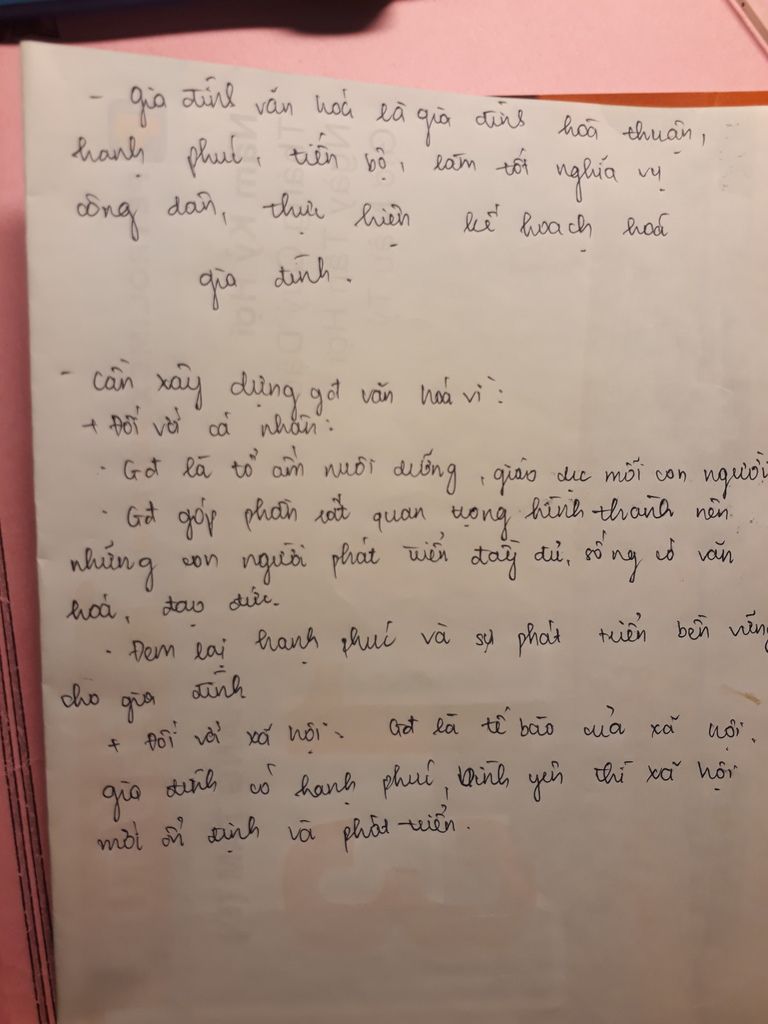 - Gia đình văn hoá là gia đình hoà thuận,
hạnh phúc, tiến bộ, làm tốt nghĩa vụ
công dân, thực hiện kế hoạch hoá
gia đình.
- Cần xây dựng gđ văn hoá vì:
+ Đối với cá nhân:
· Gđ là tổ ấm nuôi dưỡng, giáo dục mỗi con người
· Gđ góp phần rất quan trọng hình thành nên
những con người phát triển đầy đủ, sống có văn
hoá, đạo đức.
· Đem lại hạnh phúc và sự phát triển bền vững
cho gia đình
+ Đối với xã hội: Gđ là tế bào của xã hội.
gia đình có hạnh phúc, bình yên thì xã hội
mới ổn định và phát triển.